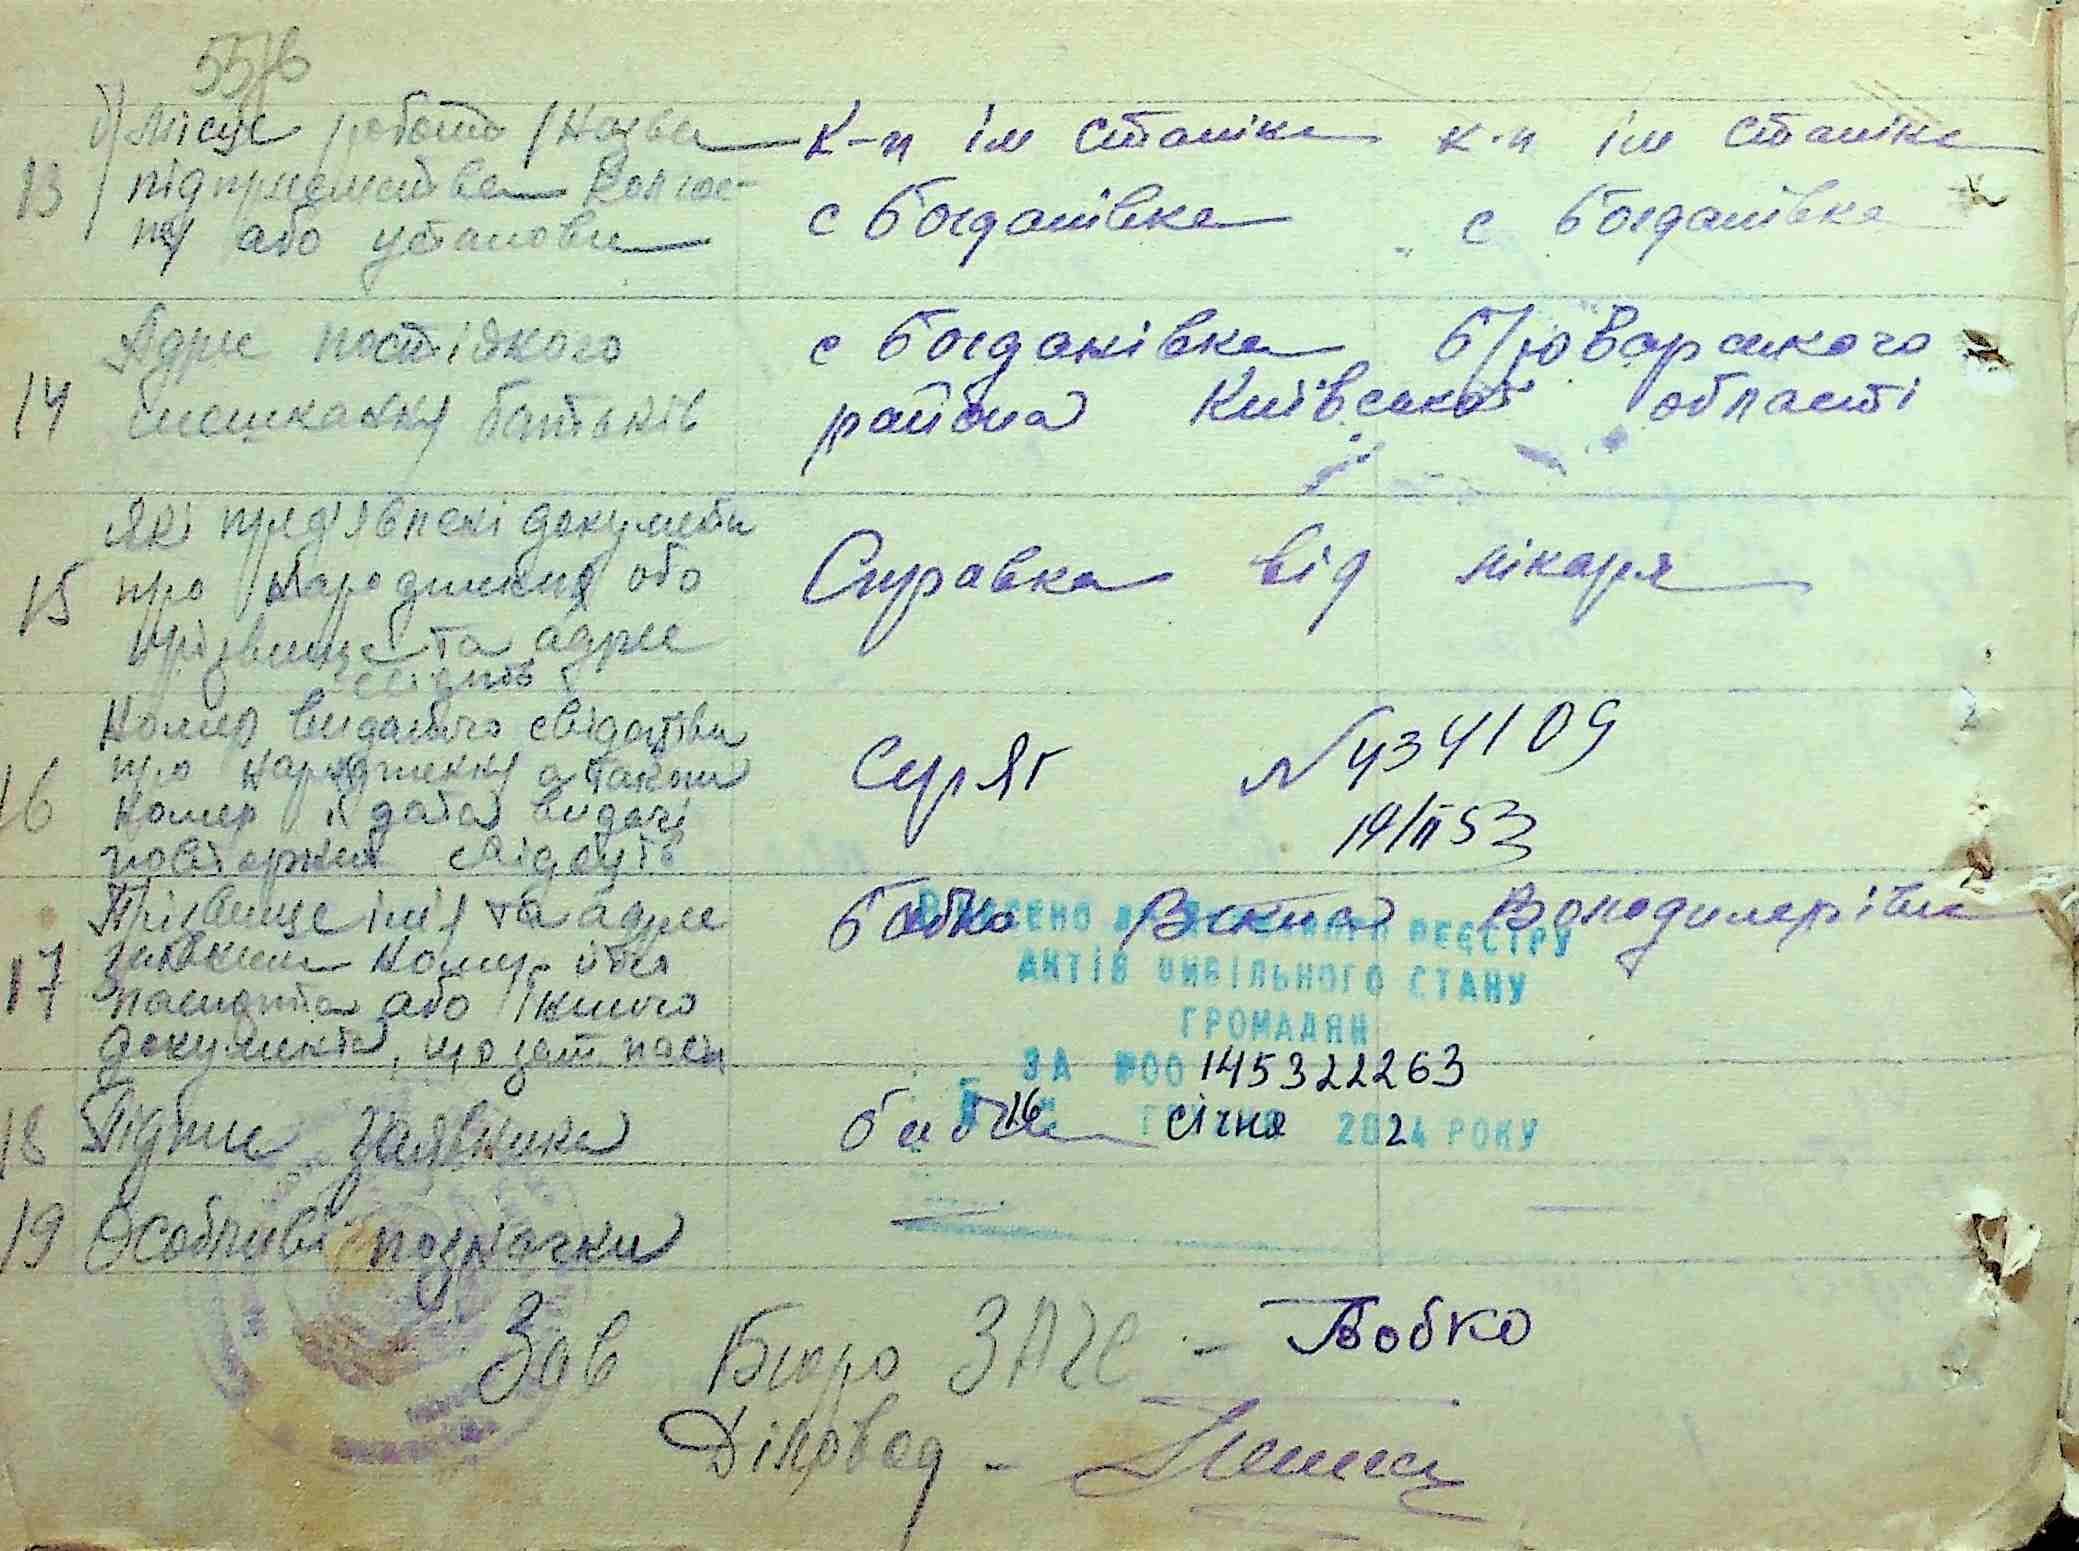 557б
13 д) Місце роботи /Назва К-п ім Сталіна к-п ім Сталіна
підприємства колгос-
пу або установи с Богданівка с Богданівка
14 Адрес постійного с Богданівка Броварського
мешкання батьків району Київської області
15 Які пред'явлені документи
про народження або Справка від лікаря
прізвище та адрес
свідків
16 Номер виданого свідоцтва
про народження а також СурЯг N 434109
номер і дата видачі 19/II 53
повторних свідоцтв
17 Прізвище ім'я та адрес Бабко Володимирівна
заявника Номер його
паспорта або іншого
документа, що зам. пасп
ВНЕСЕНО ДО ДЕРЖАВНОГО РЕЄСТРУ
АКТІВ ЦИВІЛЬНОГО СТАНУ
ГРОМАДЯН
ЗА №00145322263
16 січня 2024 РОКУ
18 Підпис заявника Бабко
19 Особливі позначки
Зав Бюро ЗАГС - Бобко
Діловод -